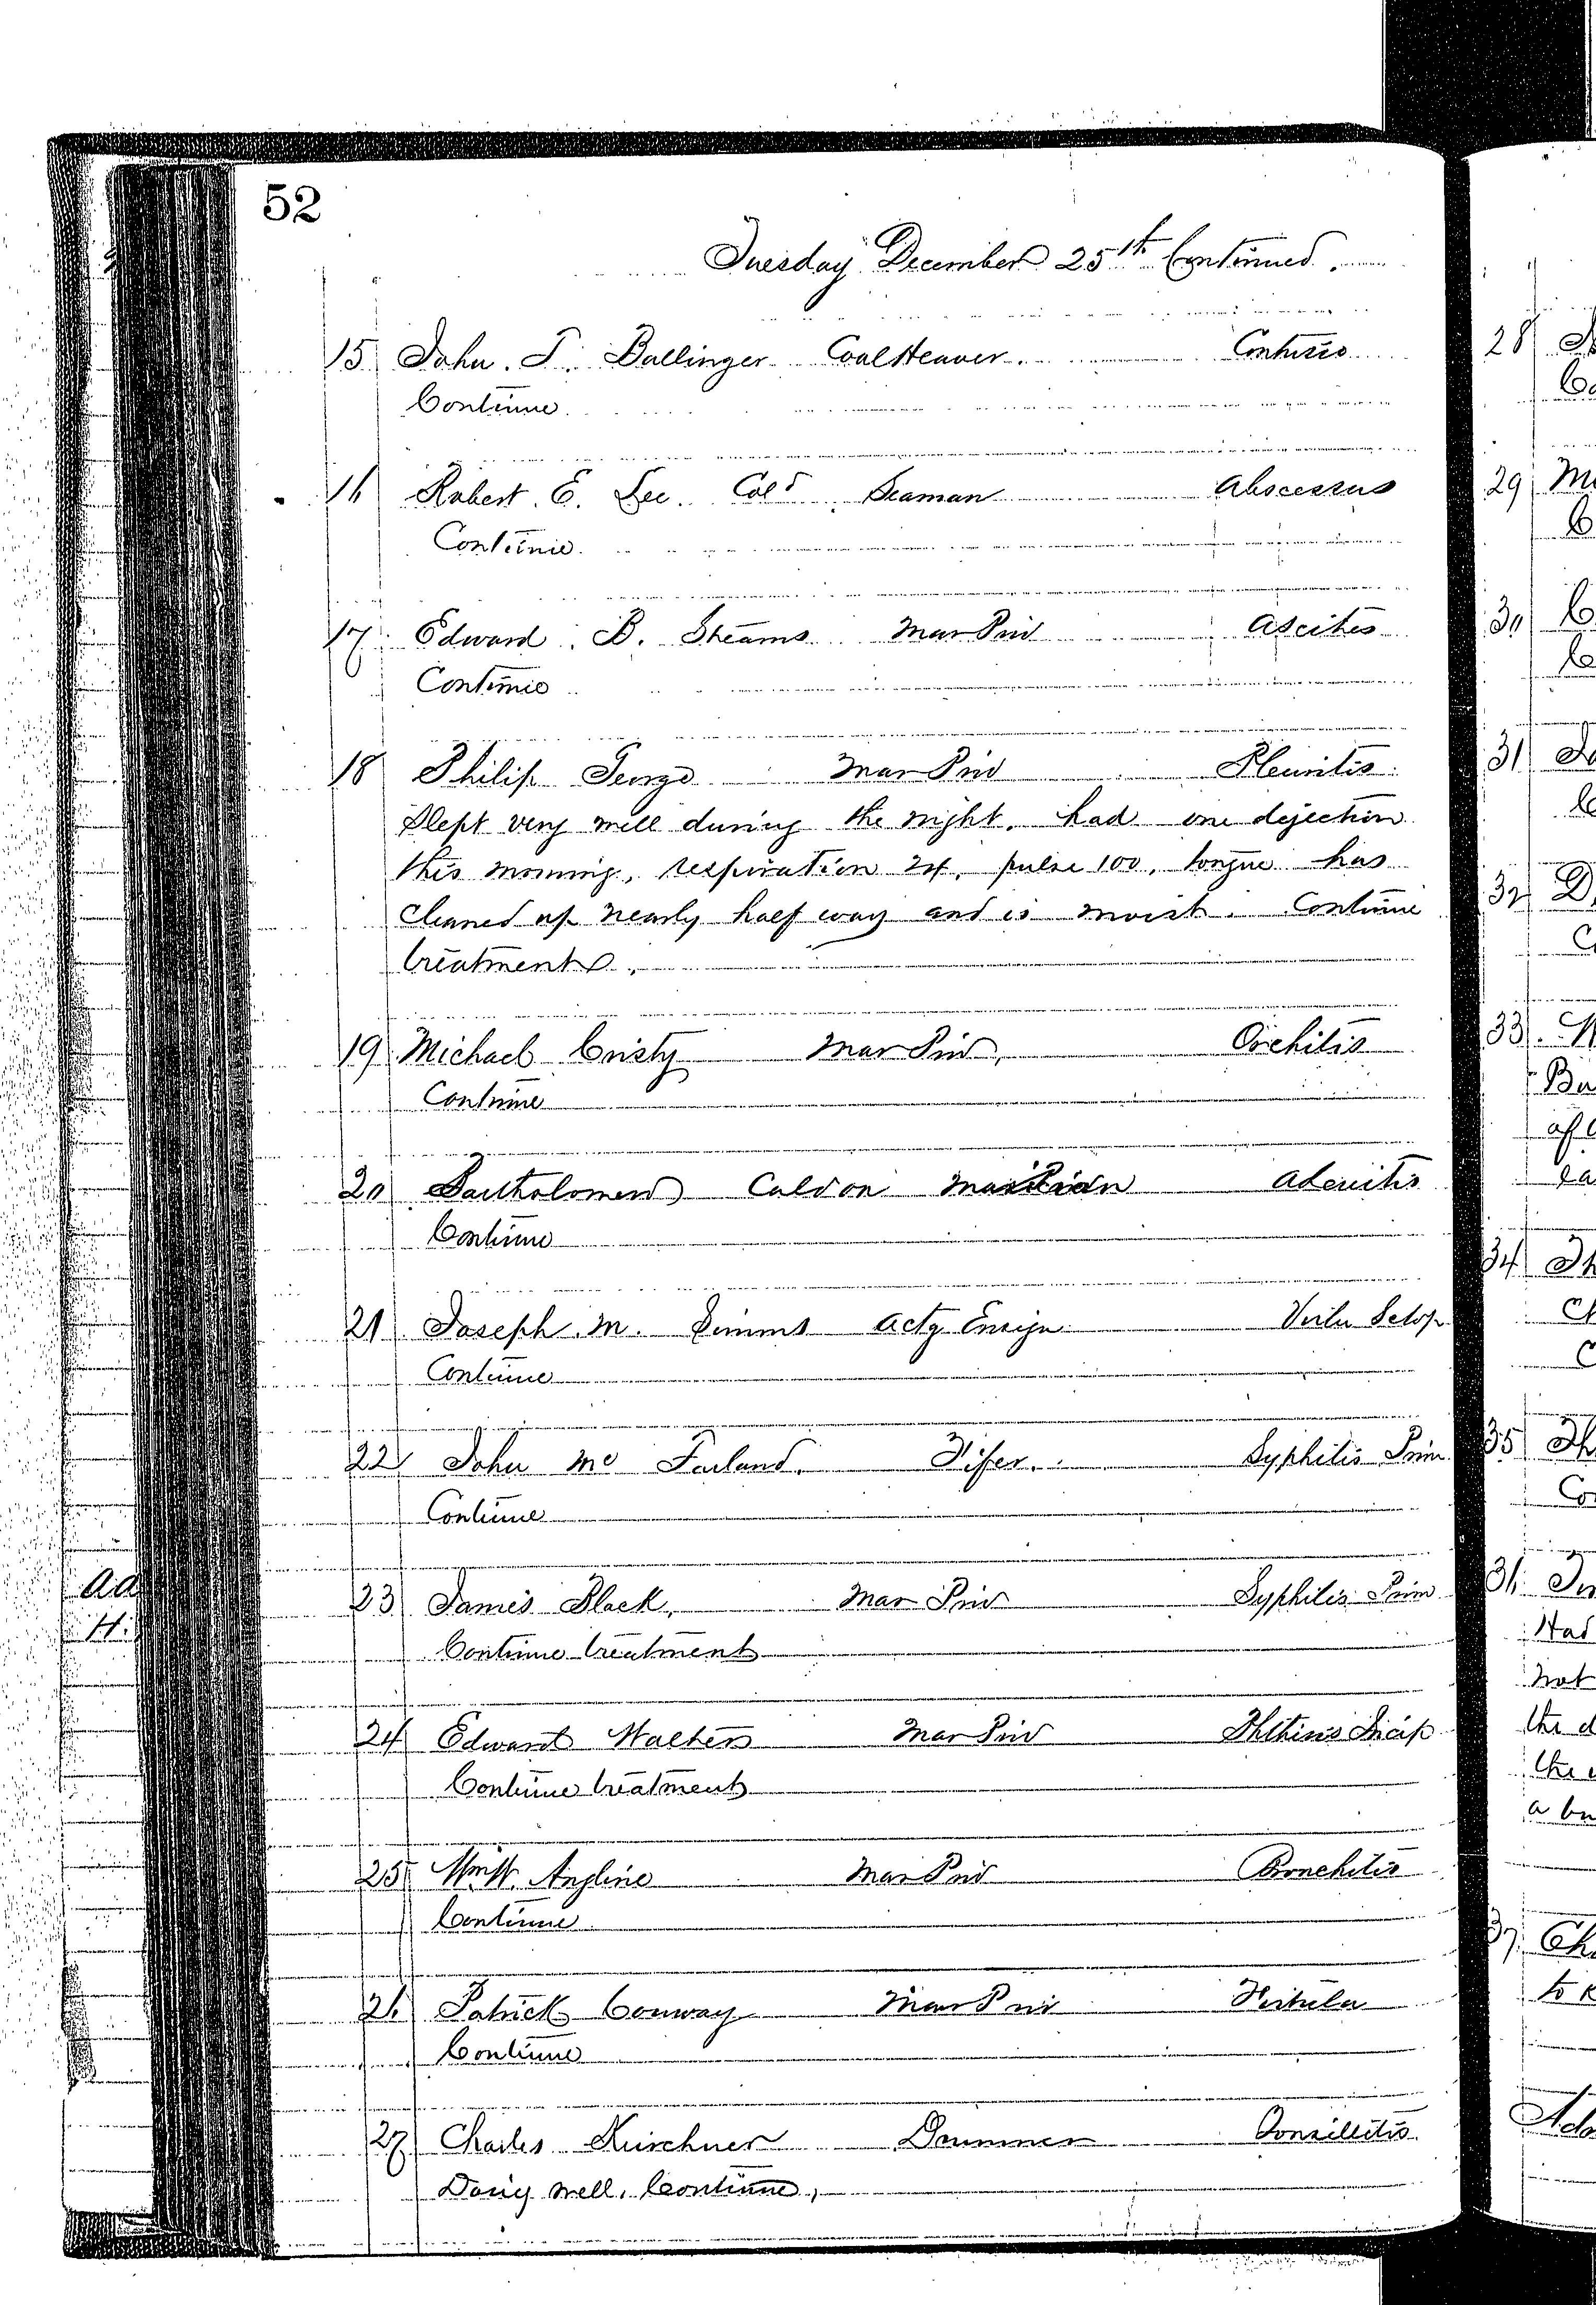 52
Tuesday December 25th Continued.
15 John. T. Ballinger Coal Heaver. Contusio
Continue
16 Robert. E. Lee. Cold Seaman Abscessus
Continue.
17 Edward. B. Stearns Mar Priv Ascites
Continue
18 Philip George Mar Priv Pleuritis.
Slept very well during the night. had one dejection
this morning, respiration 24, pulse 100, tongue has
cleaned up nearly half way and is moist. Continue
treatment.
19 Michael Cristy Mar Priv, Orchitis
Continue
20 Bartholomew Caldon Adenitis
Continue
21 Joseph. M. Simms Actg Ensign
Continue
22 John Mc Farland. Fifer. Syphilis Prim
Continue
23 James Black, Mar Priv Syphilis Prim
Continue treatment
24 Edward Walters Mar Priv Phthisis
Continue treatment
25 Angline Mar Priv Bronchitis
Continue
26 Patrick Conway Mar Priv Fistula
Continue
27 Charles Kirschner Drummer Tonsillitis
Doing well. Continue,
28
29
30
31
32
33
34
35
36
Had
not
the
the
a
37
to